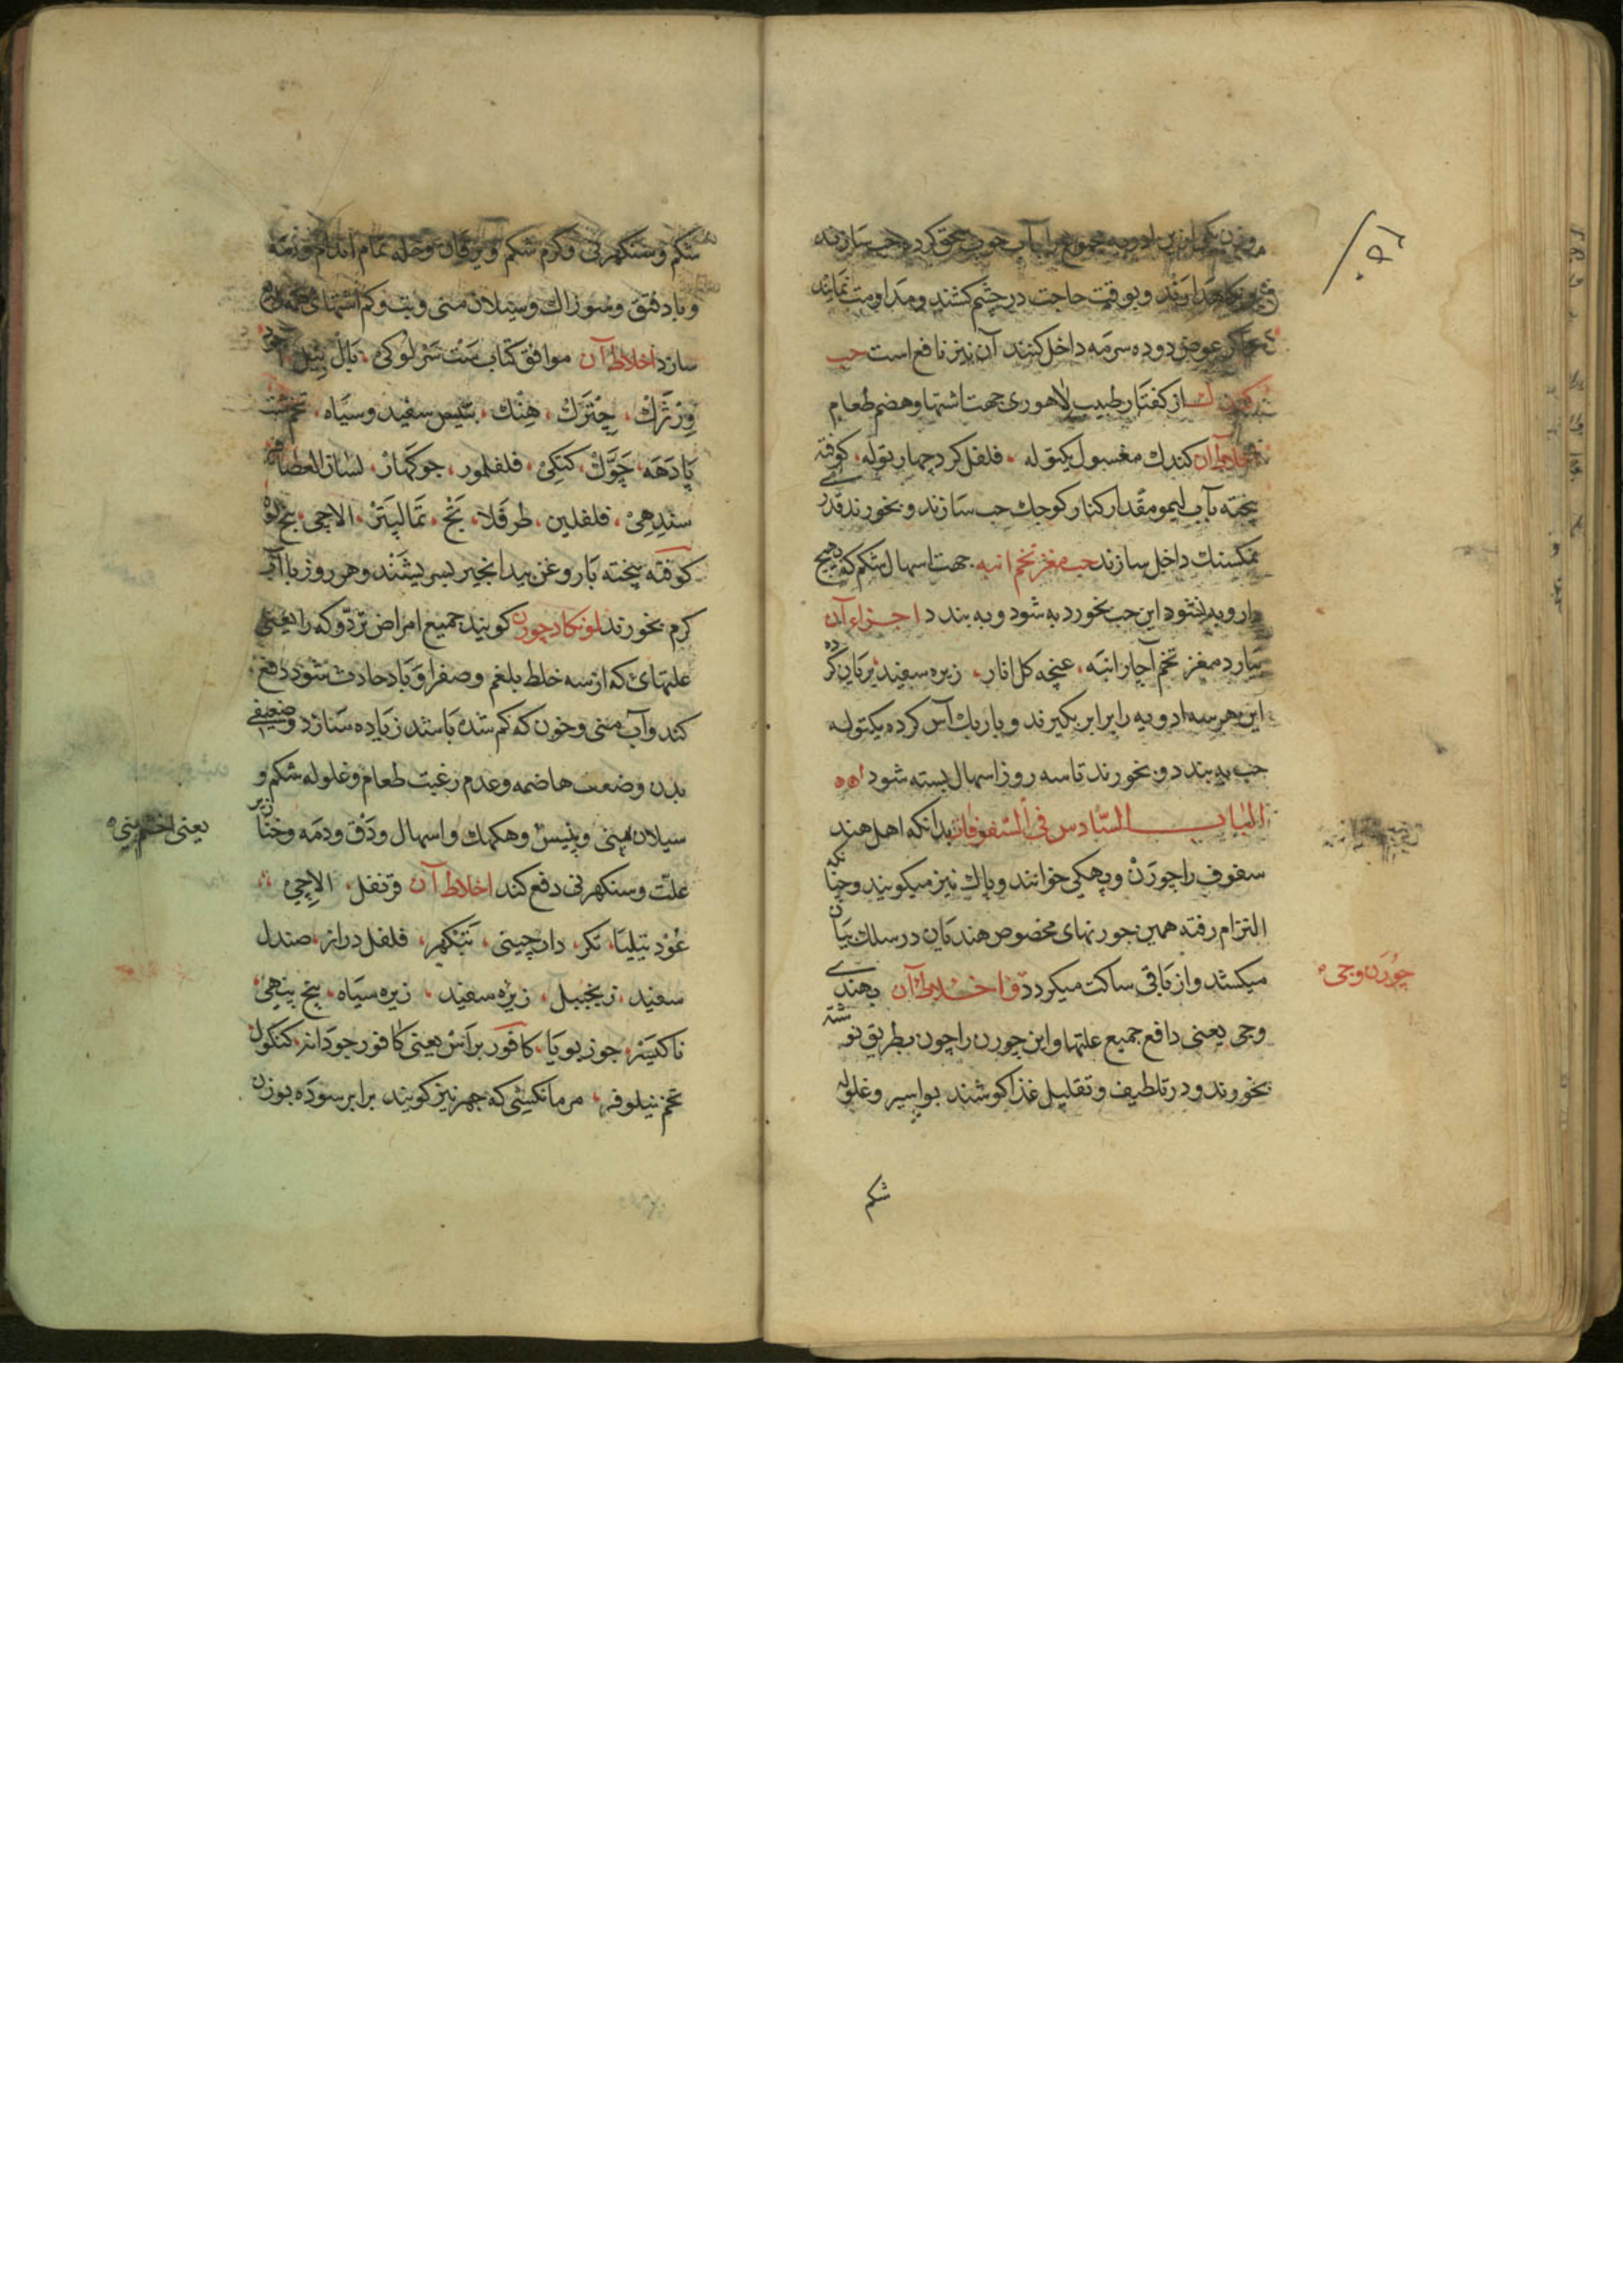 وزن یکی ازین ادویه مجموع را بآب خوب سحق کرده حب سازند
نکاهدارند و بوقت حاجت در چشم کشند و مداومت نمایند
اکر عوض دوده سرمه داخل کنند آن نیز نافع است حب
کندك از کفتار طبیب لاهوری جهت اشتها و هضم طعام
اخلاط آن کندك مغسول یکتوله فلفل کرد چهار توله کوفته
پخته بآب لیمو مقدار کنار کوچك حب سازند و بخورند قدری
نمکسنك داخل سازند حب مغز تخم انبه جهت اسهال شکم که بهیچ
دارو به نشود این حب بخورد به شود و به بندد اجزاء آن
بیارد مغز تخم آچار انبه غنچه کل انار زیره سفید بریان کرده
این هر سه ادویه را برابر بکیرند و باریك آس کرده یکتوله
حب به بندد و بخورند تا سه روز اسهال بسته شود
الباب السادس فی السفوفات بدانکه اهل هند
سفوف را چورن و پهکی خوانند و پاك نیز میکویند و چنانکه
التزام رفته همین چورنهای مخصوص هندیان در سلك بیان
میکشد و از باقی ساکت میکردد اخلاط آن بهندی
وجی یعنی دافع جمیع علتها و این چورن را چون بطریق نوشته
بخورند و در تلطیف و تقلیل غذا کوشند بواسیر و غلوله
چورن وجی
شکم
شکم و سنکهرنی و کرم شکم و یرقان و جمله تمام اندام و دمه
و باد فتق و سوزاك و سیلان منی و تب و کم اشتهای
سازد اخلاط آن موافق کتاب بال بیل
ورترك چترك هنك بتیس سفید و سیاه تخم
پادهه چوك کنکی فلفلمور جوکهار لسان العصافیر
سندهی فلفلین طرفلا بخ تمالپتر الاچی بیخ
کوفته پخته با روغن بیدانجیر بسریشند و هر روز با آب
کرم بخورند لونکادچورن کویند جمیع امراض تردوکه را یعنی
علتهای که از سه خلط بلغم و صفرا و باد حادث شود دفع
کند و آب منی و خون که کم شده باشد زیاده سازد و ضعیفی
بدن و ضعف هاضمه و عدم رغبت طعام و غلوله شکم و
سیلان منی و پنیس و هکهك و اسهال و دق و دمه و خنازیر
علت و سنکهرنی دفع کند اخلاط آن قرنفل الاچی
عود تیلیا تکر دارچینی فلفل دراز صندل
سفید زنجبیل زیره سفید زیره سیاه بیخ
ناکیسر جوز بویا کافور براس یعنی کافور جودانه کنکول
تخم نیلوفر که جهر نیز کویند برابر سوده بوزن
یعنی اخشم بینی